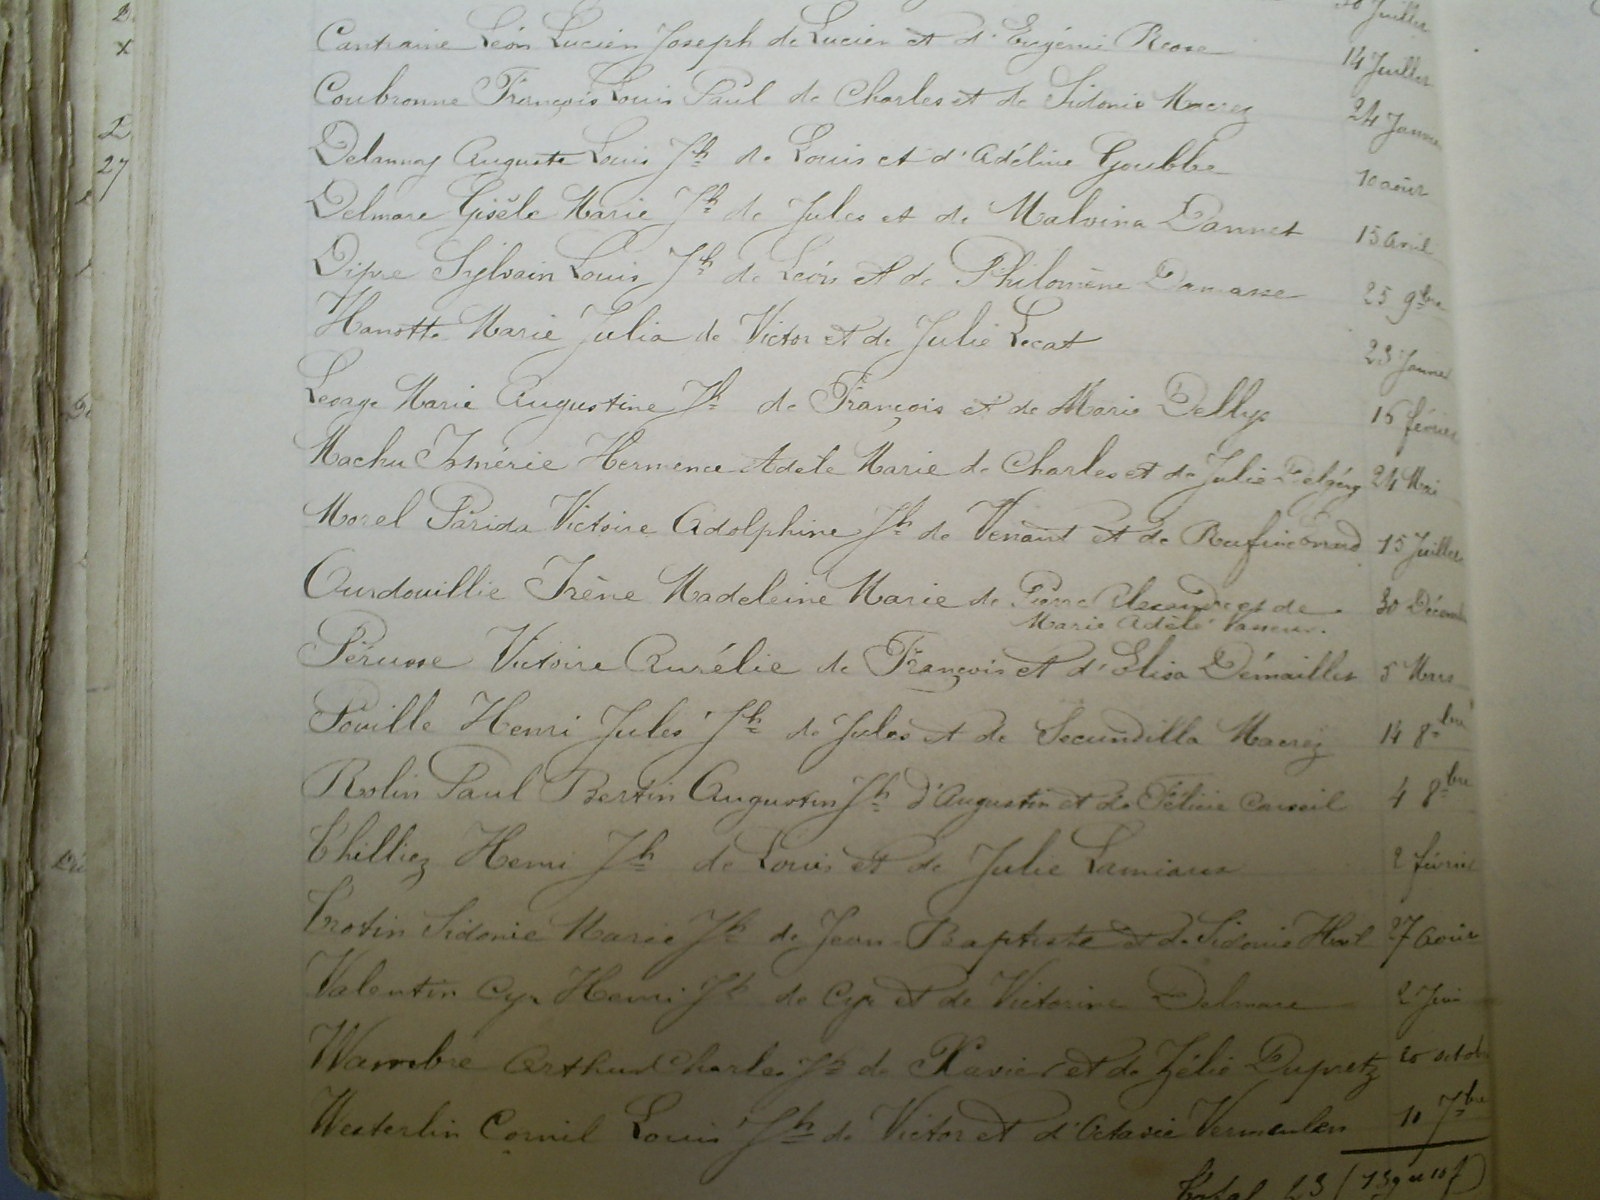 30 Juillet
Cantraine Léon Lucien Joseph de Lucien et d'Eugénie Reose 14 Juillet
Coubronne François Louis Paul de Charles et de Sidonie Macrez 24 Janvier
Delannoy Auguste Louis Jh de Louis et d'Adéline Goubbe 10 août
Delmare Gisèle Marie Jh de Jules et de Malvina Dannet 15 avril
Dipre Sylvain Louis Jh de Léon et de Philomène Damasse 25 9bre
Hanotte Marie Julia de Victor et de Julie Lecat 23 Janvier
Lesage Marie Augustine Jh de François et de Marie Dellys 15 février
Machu Isménie Hermence Adèle Marie de Charles et de Julie Delgéry 24 Mai
Morel Parida Victoire Adolphine Jh de Venant et de Rufine 15 Juillet
Ourdouillie Irène Madeleine Marie de Pierre Alexandre et de 30 Décembre
Marie Adèle Vasseur.
Pérusse Victoire Aurélie de François et d'Elisa Démaillier 5 Mars
Pouille Henri Jules Jh de Jules et de Secundilla Macrez 14 8bre
Rolin Paul Bertin Augustin Jh d'Augustin et de Félicie Carseil 4 8bre
Thilliez Henri Jh de Louis et de Julie Lamiaux 2 février
Trotin Sidonie Marie Jh de Jean-Baptiste et de Sidonie 27 août
Valentin Cyr Henri Jh de Cyr et de Victorine Delmare 2 Juin
Wambre Arthur Charles Jh de Xavier et de Zélie Dupretz 20 octobre
Westerlin Cornil Louis Jh de Victor et d'Octavie Vermeulen 10 7bre
Total 23 (13g et 10f)
2
x
2
27